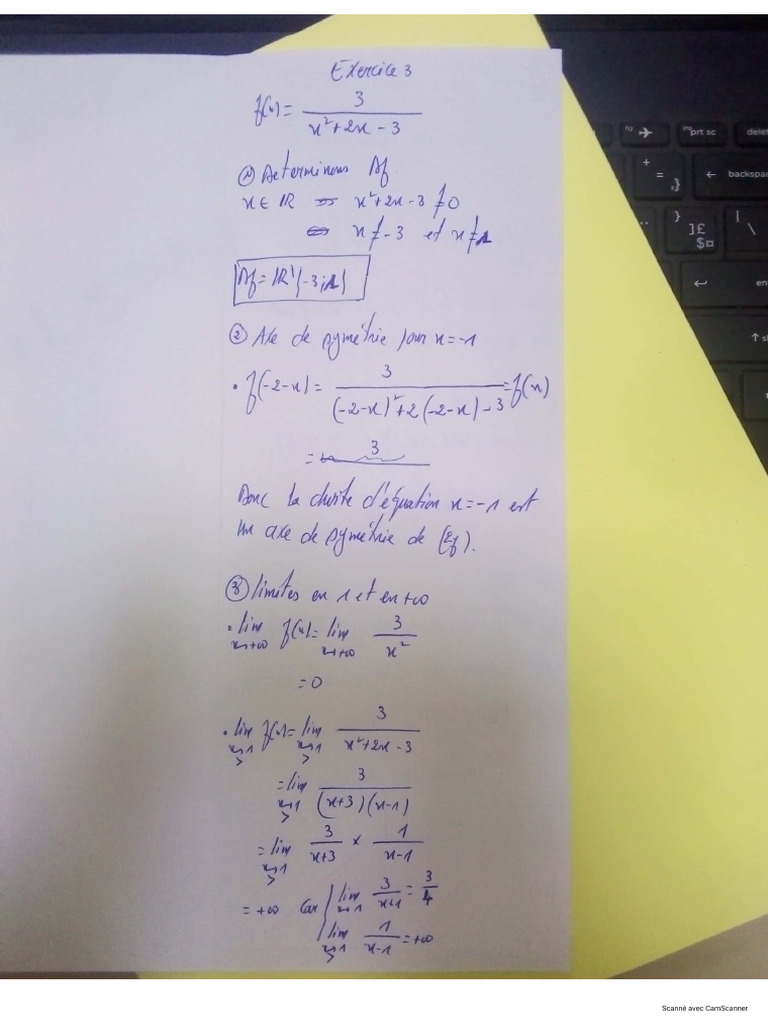 Exercice 3
f(x) = 3 / (x²+2x-3)
① Determinons Df.
x ∈ IR ⇔ x²+2x-3 ≠ 0
⇔ x ≠ -3 et x ≠ 1
Df = IR\{-3;1}
② Axe de symétrie pour x=-1
• f(-2-x) = 3 / ((-2-x)²+2(-2-x)-3 = f(x)
= 3
Donc la droite d'équation x=-1 est
un axe de symétrie de (Cf).
③ limites en 1 et en +∞
• lim x→+∞ f(x) = lim x→+∞ 3/x²
= 0
• lim x→1 > f(x) = lim x→1 > 3 / (x²+2x-3)
= lim x→1 > 3 / ((x+3)(x-1))
= lim x→1 > 3/(x+3) × 1/(x-1)
= +∞ Car { lim x→1 3/(x+1) = 3/4
lim x→1 > 1/(x-1) = +∞
fn
prt sc
delete
backspa
+
=
,}
}
]£
$¤
|
\
en
sl
Scanné avec CamScanner